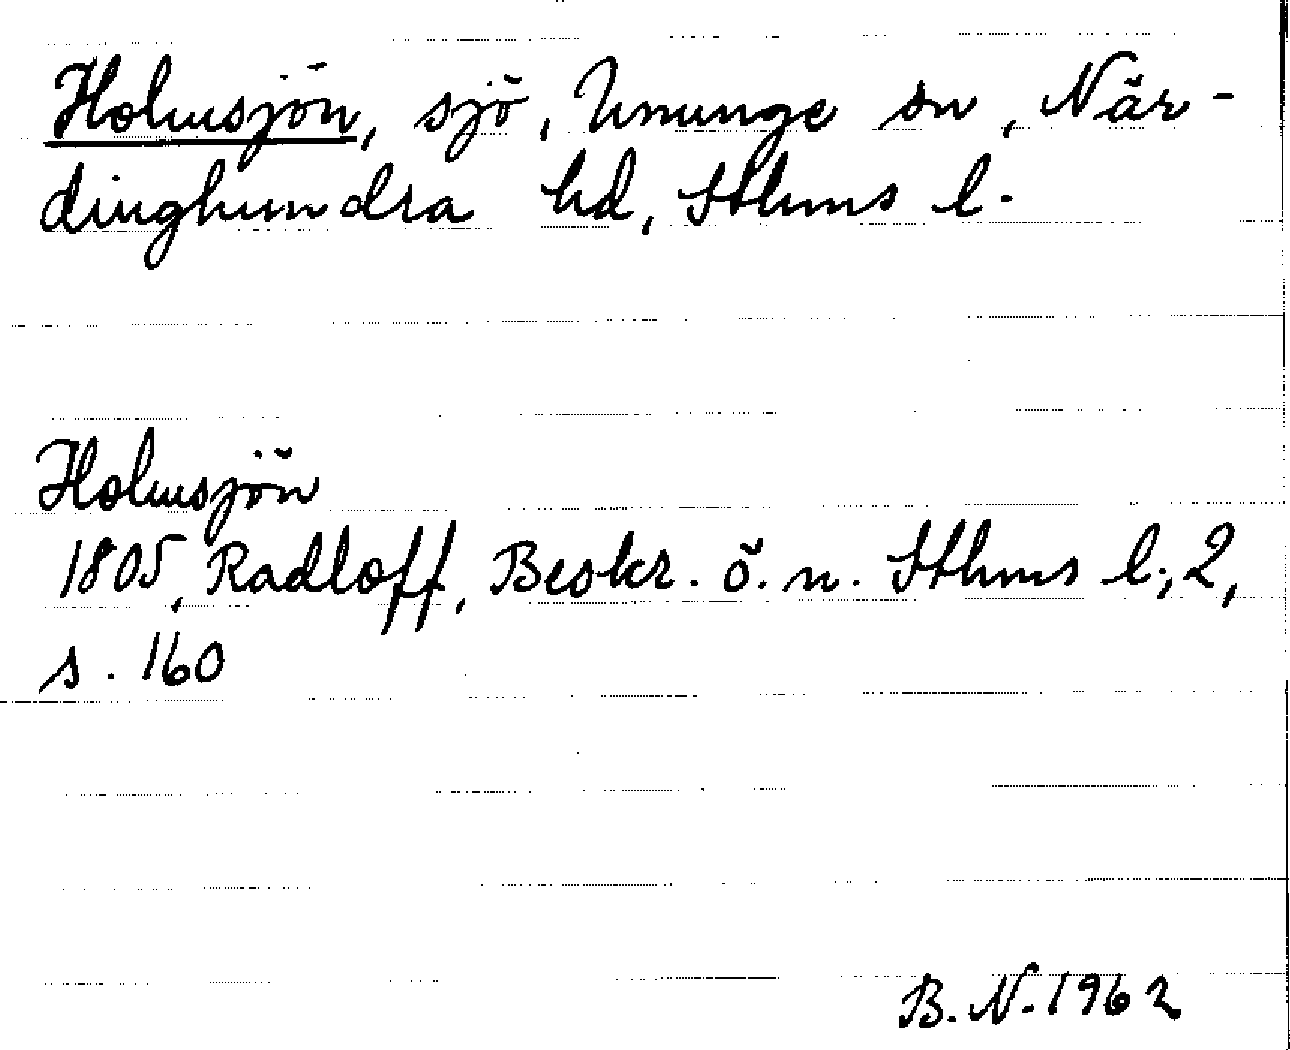 Holmsjön, sjö, Ununge sn, När-
dinghundra hd, Sthms l.
Holmsjön
1805, Radloff, Beskr. ö. n. Sthms l., 2,
s. 160
B. N. 1962